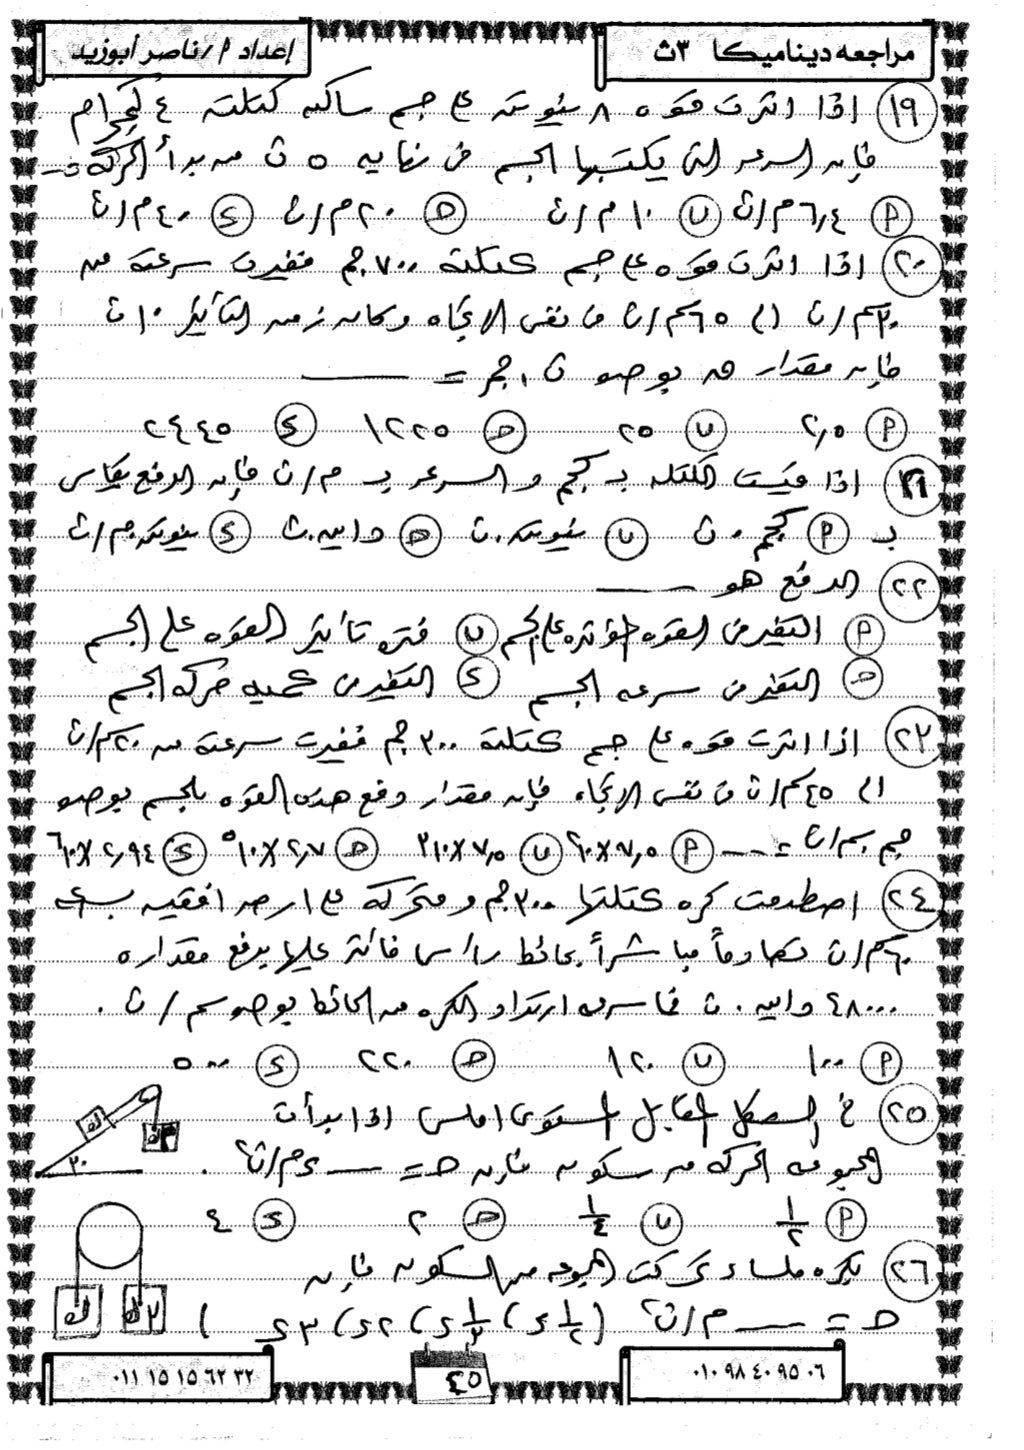 مراجعه ديناميكا ٣ث
إعداد م/ ناصر أبوزيد
(١٩) اذا اثرت قوه ٨ نيوتن على جسم ساكن كتلته ٤ كجرام
فإن السرعه التى يكتسبها الجسم فى نهايه ٥ ث من بدأ الحركة هى
(أ) ٦,٤ م/ث (ب) ١٠ م/ث (ح) ٢٠ م/ث (ء) ٤٠ م/ث
(٢٠) اذا اثرت قوه على جسم كتلته ٧٠٠ جم فغيرت سرعته من
٣٠ سم/ث الى ٦٥ سم/ث فى نفس الاتجاه وكان زمن التأثير ١٠ ث
فإن مقدار ق بوحده ث.جم =
(أ) ٢,٥ (ب) ٢٥ (ح) ١٢٢٥ (ء) ٢٤٤٥
(٢١) اذا قيست الكتله بـ كجم و السرعه بـ م/ث فإن الدفع يقاس
بـ (أ) كجم.ث (ب) نيوتن.ث (ح) داين.ث (ء) نيوتن.م/ث
(٢٢) الدفع هو
(أ) التغير فى القوه المؤثره على الجسم (ب) فتره تأثير القوه على الجسم
(ح) التغير فى سرعه الجسم (ء) التغير فى كميه حركه الجسم
(٢٣) اذا اثرت قوه على جسم كتلته ٣٠٠ جم فغيرت سرعته من ٢٠ سم/ث
الى ٤٥ سم/ث فى نفس الاتجاه فإن مقدار دفع هذه القوه للجسم بوحده
جم.سم/ث = (أ) ٧,٥×١٠٢ (ب) ٧,٥×١٠٣ (ح) ٢,٧×١٠٥ (ء) ٢,٩٤×١٠٦
(٢٤) اصطدمت كره كتلتها ٣٠٠ جم و متحركه على ارض افقيه بسرعه
٦٠ سم/ث تصادماً مباشراً بحائط رأسى فأثر عليها بدفع مقداره
٤٨٠٠٠ داين.ث فما سرعه ارتداد الكره من الحائط بوحده سم/ث.
(أ) ١٠٠ (ب) ١٢٠ (ح) ٢٢٠ (ء) ٥٠٠
(٢٥) فى الشكل المقابل المستوى املس اذا بدأت
المجموعه الحركه من سكون فإن حـ = ء م/ث٢
ك ك ٣٠
(أ) ١/٢ (ب) ١/٤ (ح) ٢ (ء) ٤
(٢٦) بكره ملساء تحركت المجموعه من السكون فإن
حـ = م/ث٢ (١/٢ ء، ١/٣ ء، ٢ء، ٣ء)
ك ٢ك
٠١٠ ٩٨ ٤٠ ٩٥ ٠٦
٤٥
٠١١ ١٥ ١٥ ٦٢ ٣٢